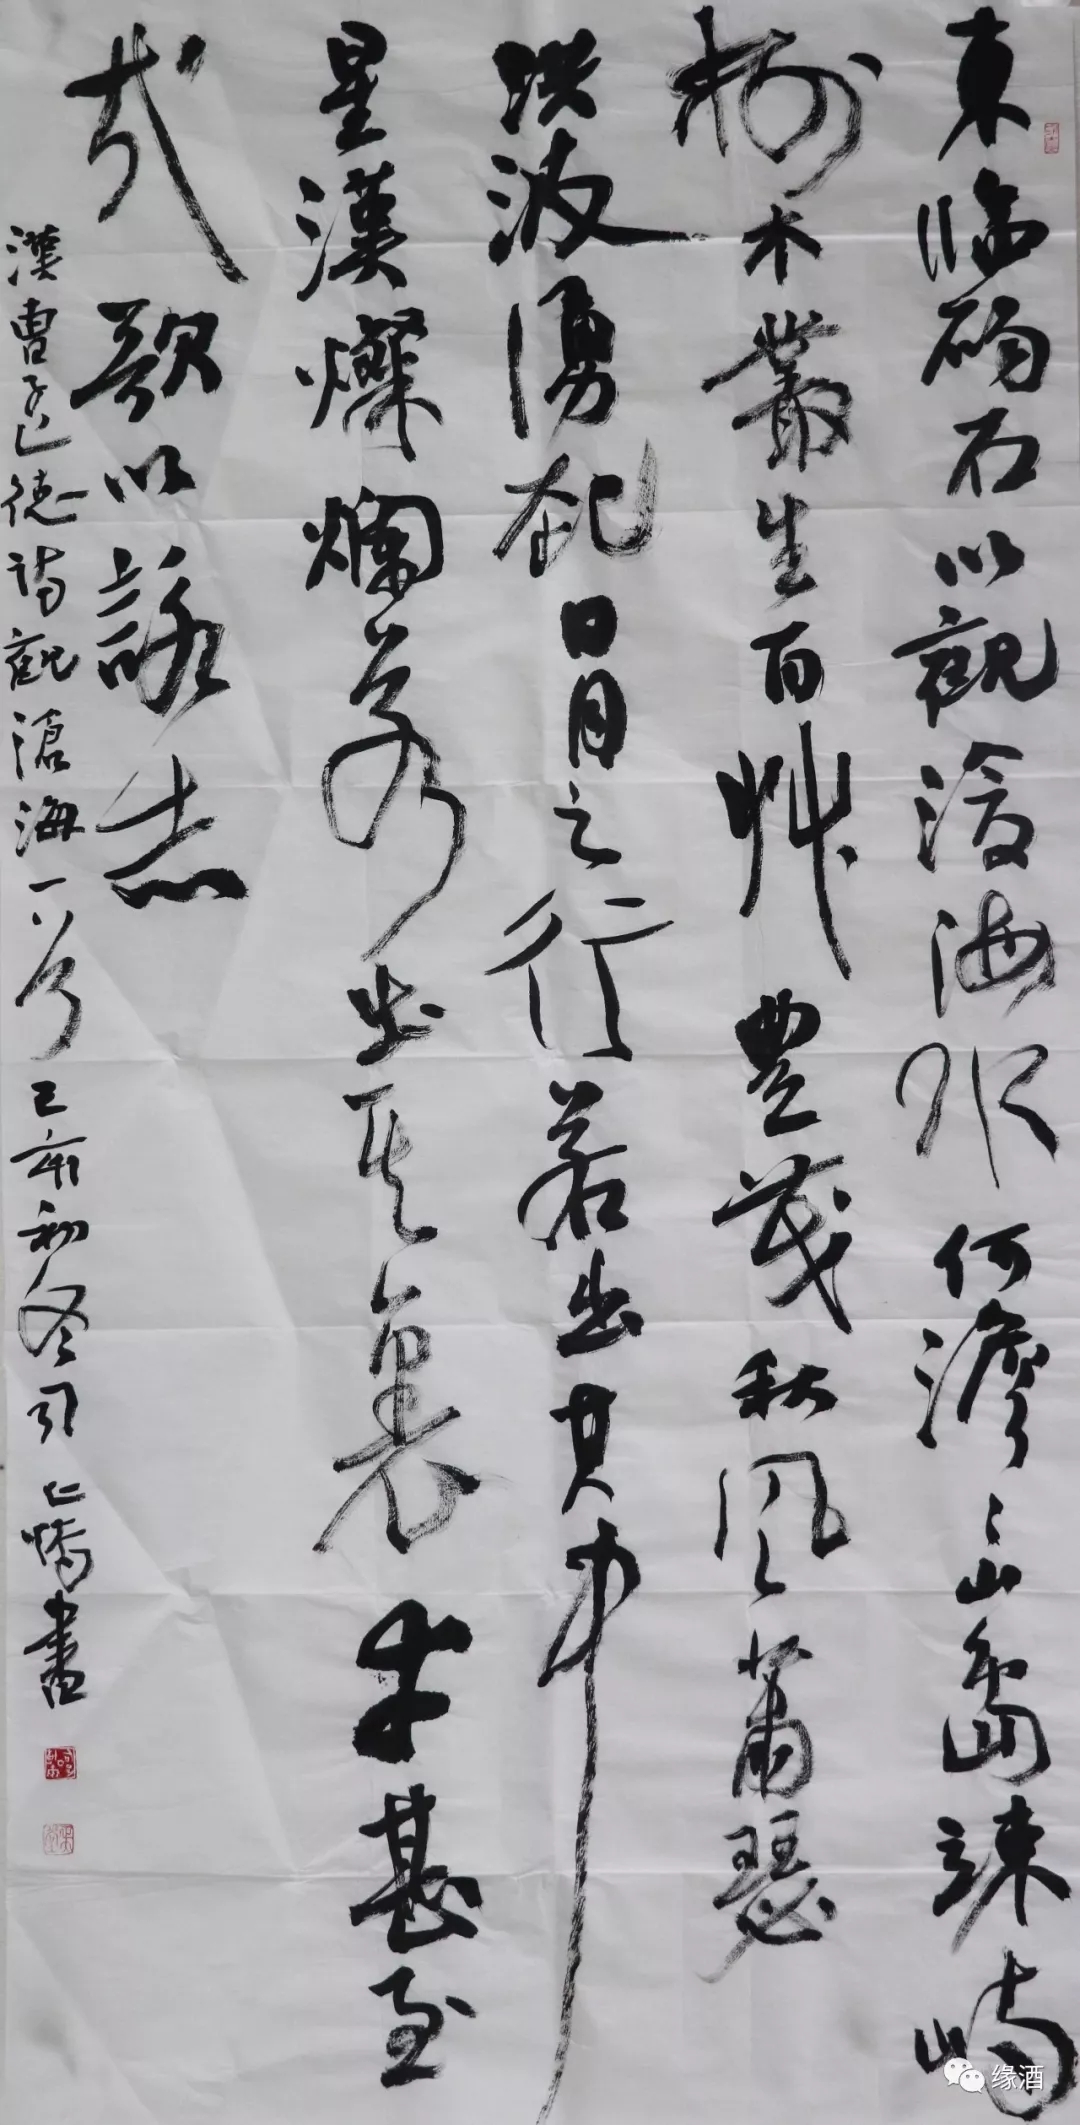 東臨碣石以觀滄海水何澹〻山島竦峙
樹木叢生百艸豐茂秋風蕭瑟
洪波湧起日月之行若出其中
星漢燦爛若出其裏幸甚至
哉歌以詠志
漢曹孟德詩觀滄海一首己亥初冬司仁嬌書
缘酒